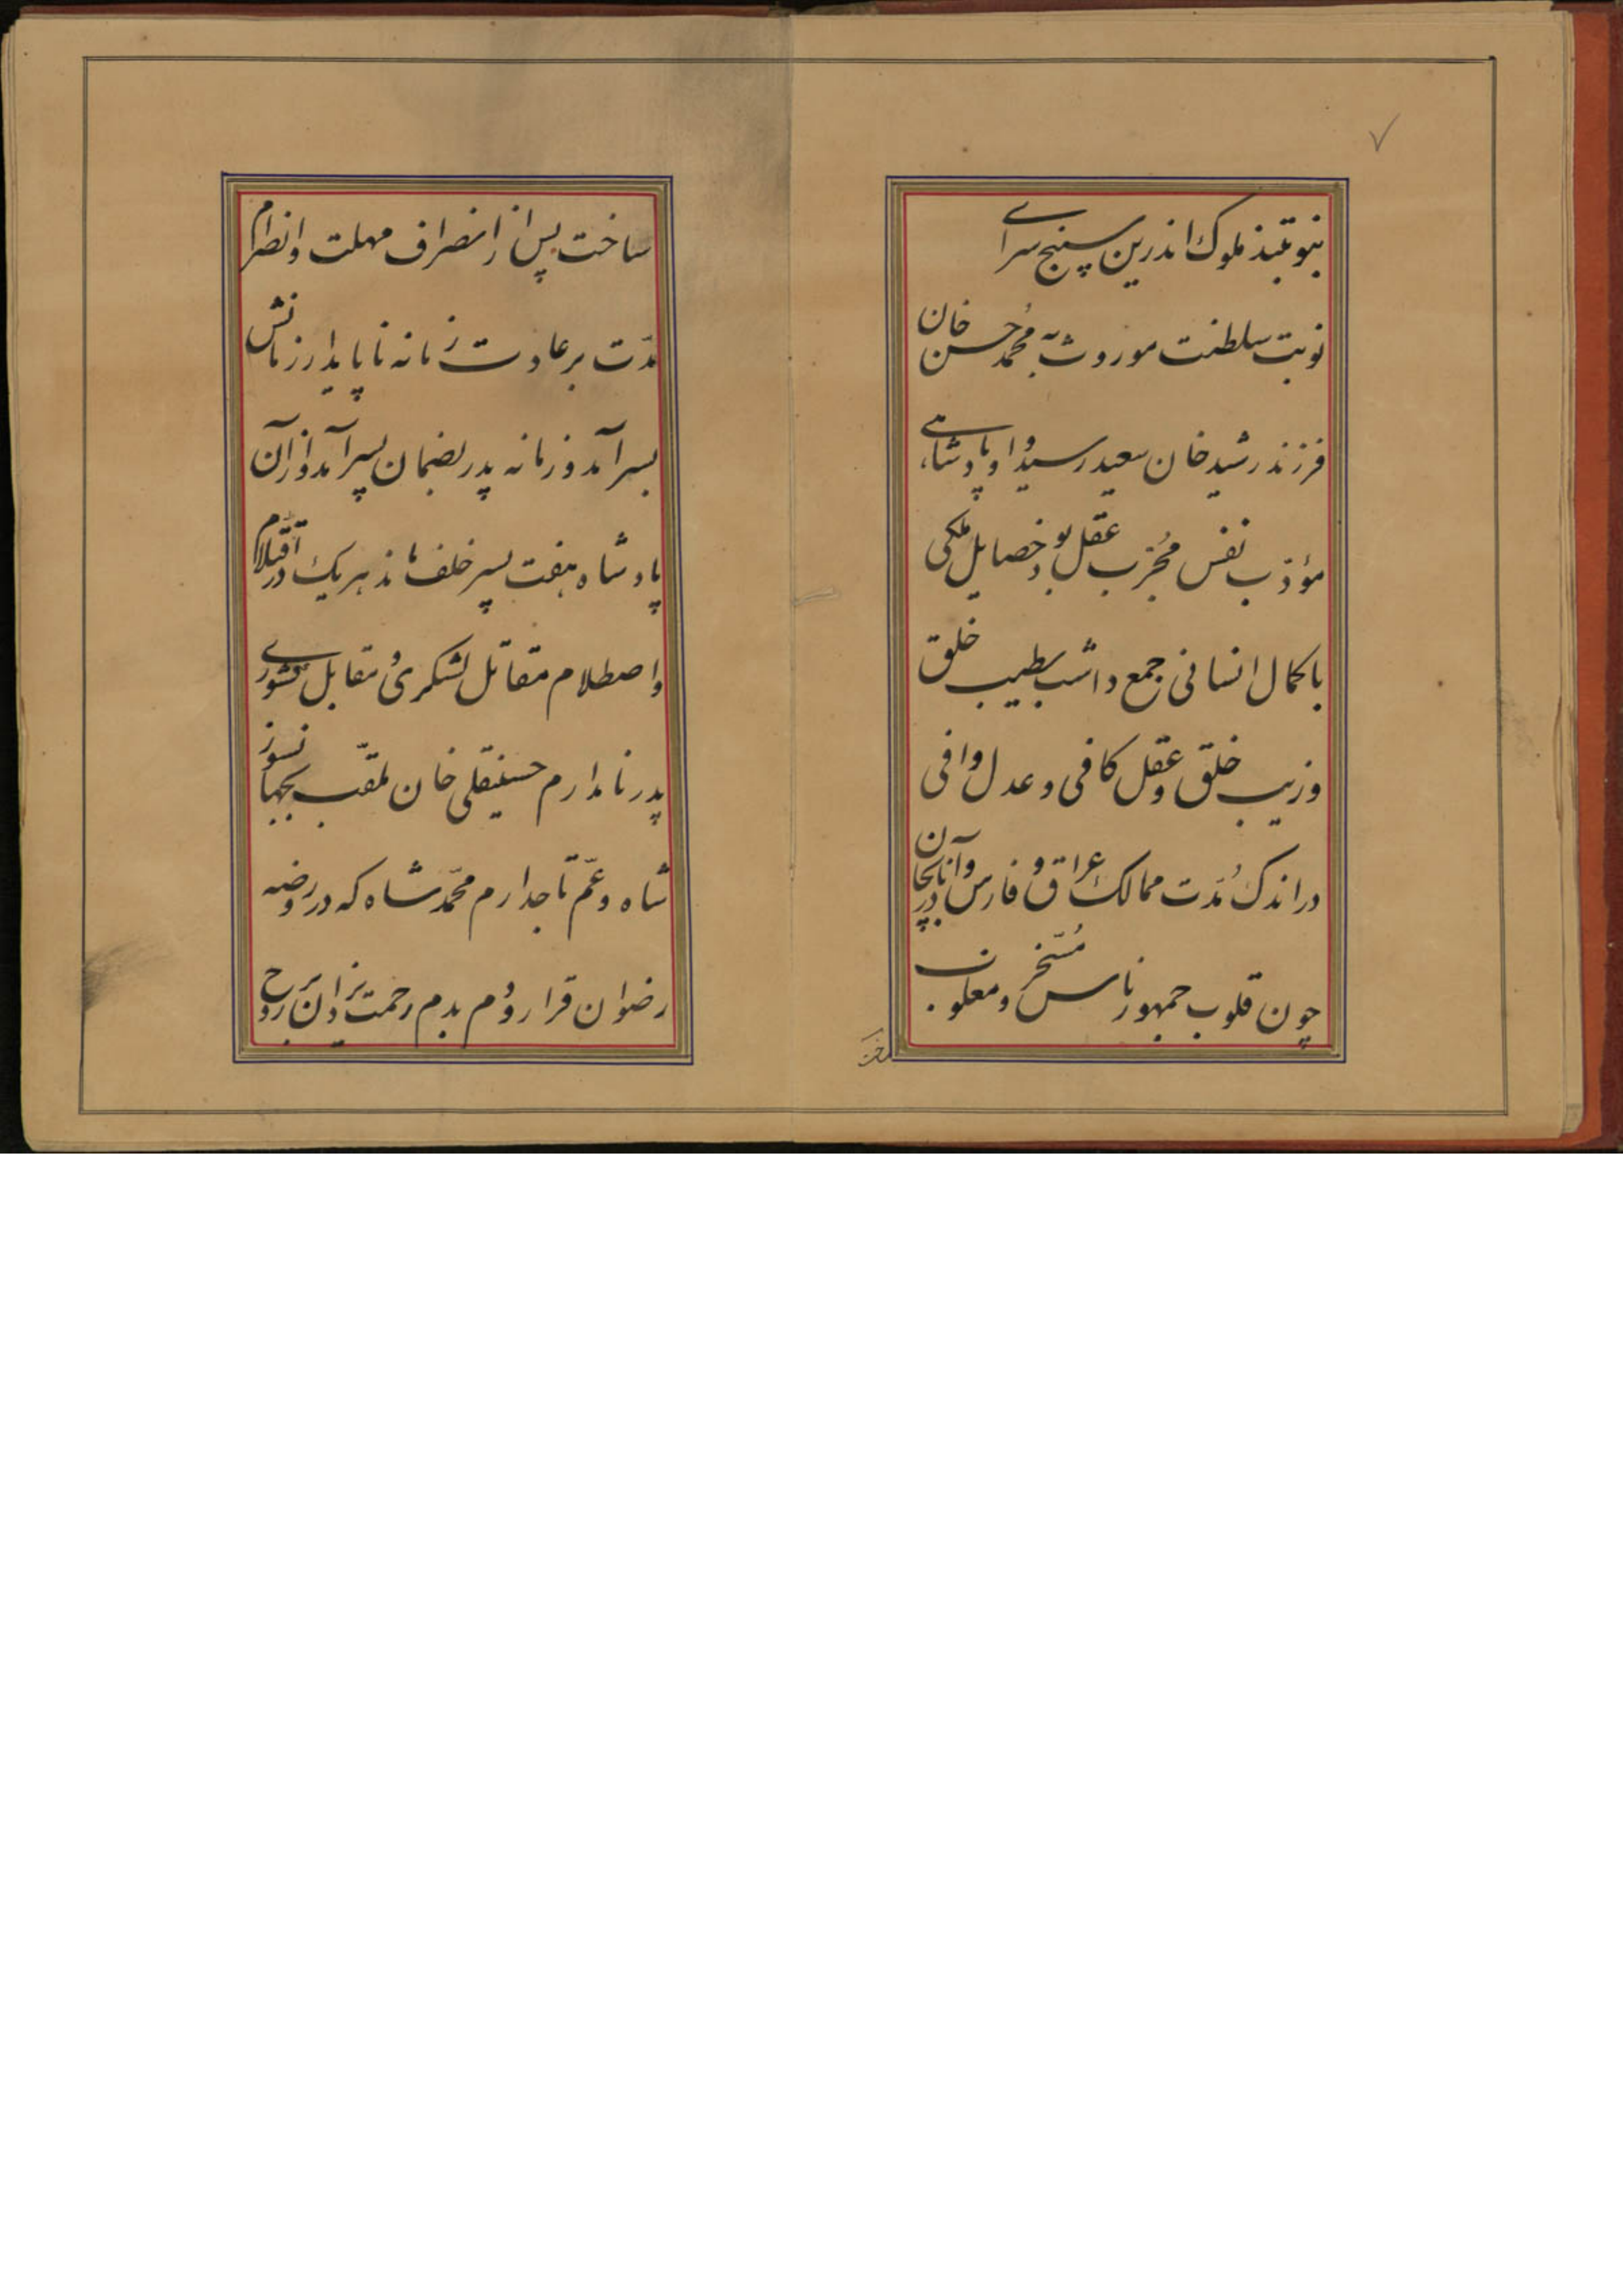 ۷
بنوبتند ملوک اندرین سپنج سرای
نوبت سلطنت موروث به محمد حسن خان
فرزند رشید خان سعید رسید و او پادشاهی
مؤدب نفس مجرب عقل بود خصایل ملکی
با کمال انسانی جمع داشت بطیب خلق
و زیب خلق و عقل کافی و عدل وافی
در اندک مدت ممالک عراق و فارس و آذربایجان
چون قلوب جمهور ناس مسخر و مغلوب
ساخت
ساخت پس از انصراف مهلت و انصرام
مدت بر عادت زمانه ناپایدار زمانش
بسر آمد و زمانه پدر بضمان پسر آمد و از آن
پادشاه هفت پسر خلف ماند هر یک در اقتلام
و اصطلام مقاتل لشکری و مقابل کشوری
پدر نامدارم حسینقلی خان ملقب بجهانسوز
شاه و عم تاجدارم محمد شاه که در روضه
رضوان قرار و دم بدم رحمت یزدان بر روح